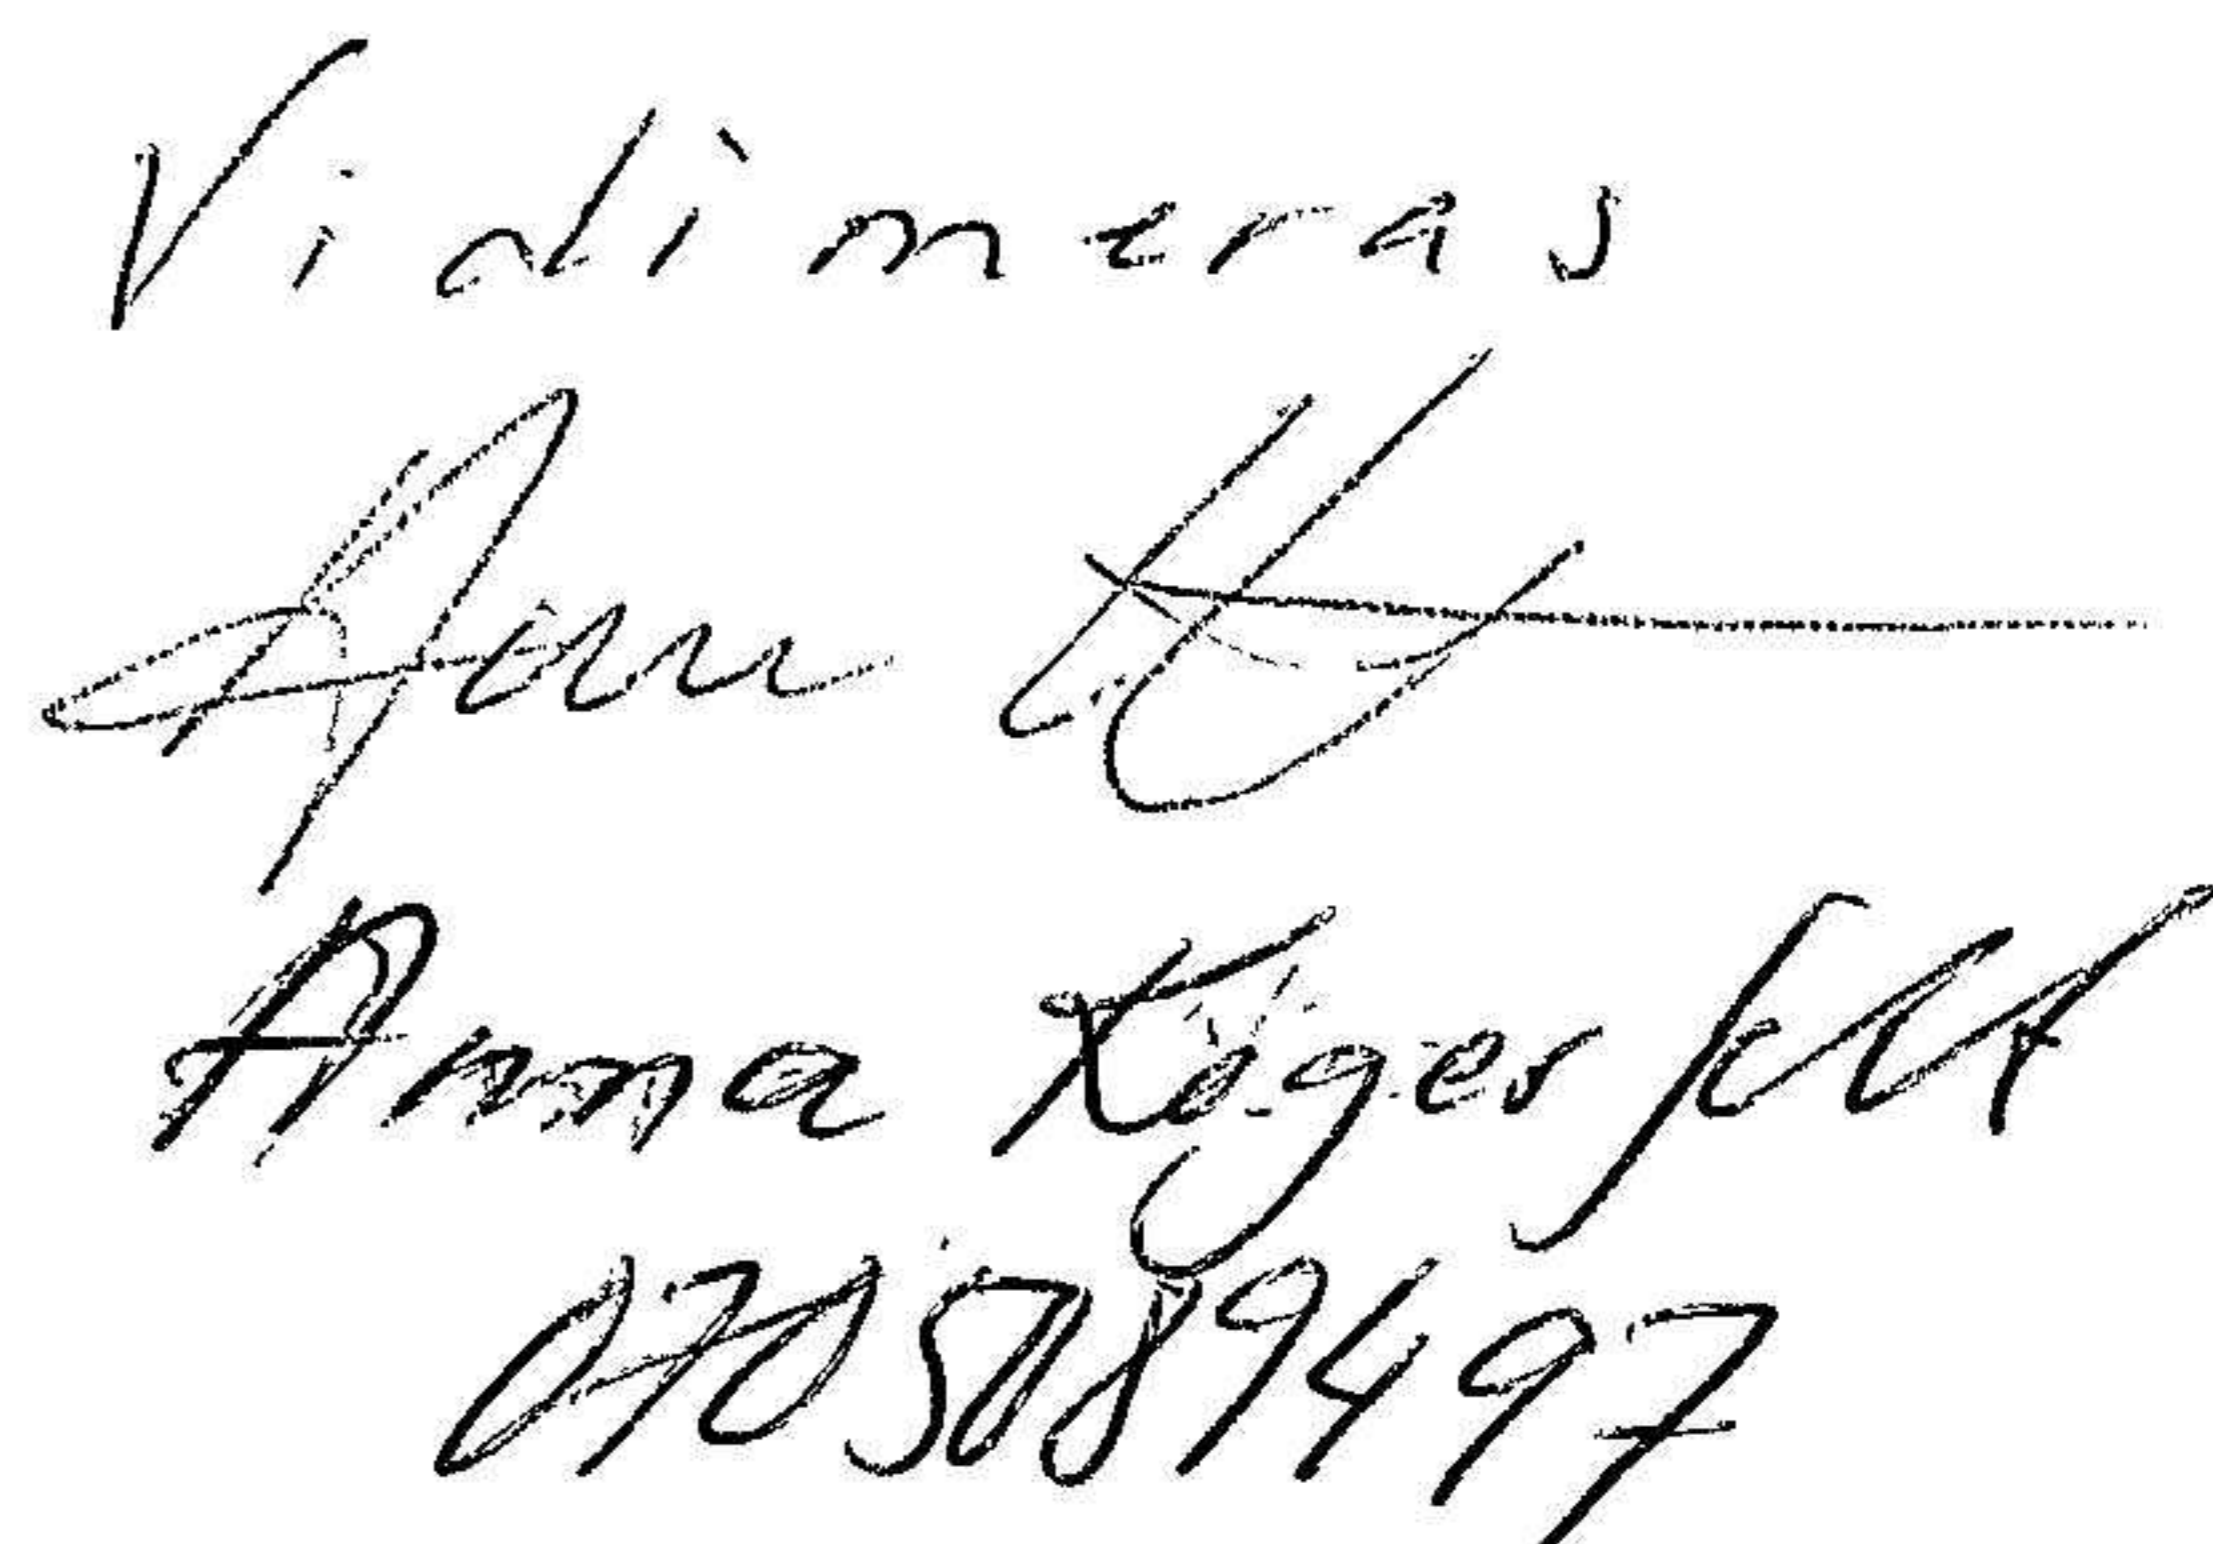 Vidimeras
Anna Kögerfelt
0705089497